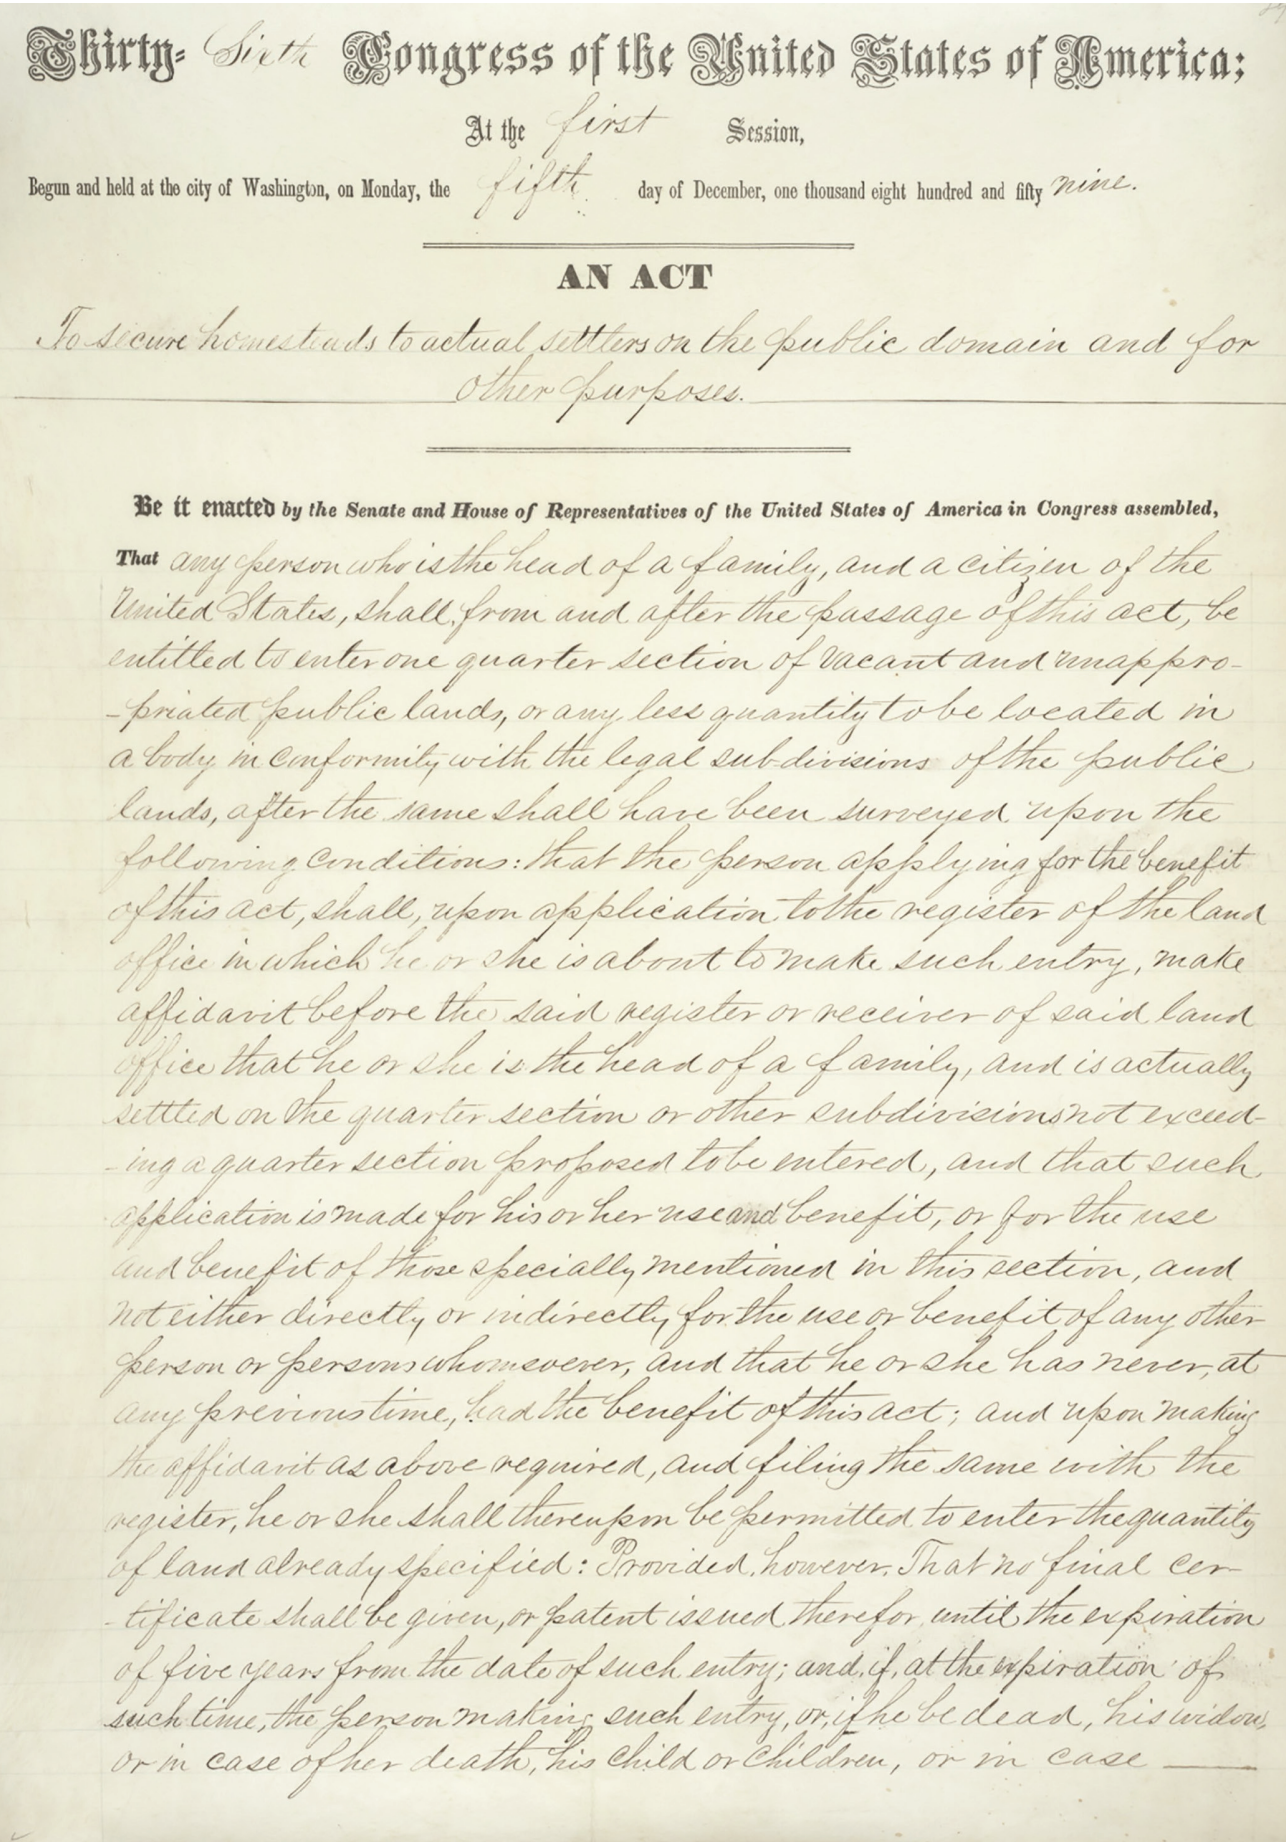 Thirty-Sixth Congress of the United States of America;
At the first Session,
Begun and held at the city of Washington, on Monday, the fifth day of December, one thousand eight hundred and fifty nine.
AN ACT
To secure homesteads to actual settlers on the public domain and for
other purposes.
Be it enacted by the Senate and House of Representatives of the United States of America in Congress assembled,
That any person who is the head of a family, and a citizen of the
United States, shall, from and after the passage of this act, be
entitled to enter one quarter section of vacant and unappro-
-priated public lands, or any less quantity to be located in
a body in conformity with the legal sub-divisions of the public
lands, after the same shall have been surveyed upon the
following conditions: that the person applying for the benefit
of this act, shall, upon application to the register of the land
office in which he or she is about to make such entry, make
affidavit before the said register or receiver of said land
office that he or she is the head of a family, and is actually
settled on the quarter section or other subdivisions not exceed-
-ing a quarter section proposed to be entered, and that such
application is made for his or her use and benefit, or for the use
and benefit of those specially mentioned in this section, and
not either directly or indirectly for the use or benefit of any other
person or persons whomsoever, and that he or she has never, at
any previous time, had the benefit of this act; and upon making
the affidavit as above required, and filing the same with the
register, he or she shall thereupon be permitted to enter the quantity
of land already specified: Provided, however, That no final cer-
-tificate shall be given, or patent issued therefor, until the expiration
of five years from the date of such entry; and, if, at the expiration of
such time, the person making such entry, or, if he be dead, his widow,
or in case of her death, his child or children, or in case